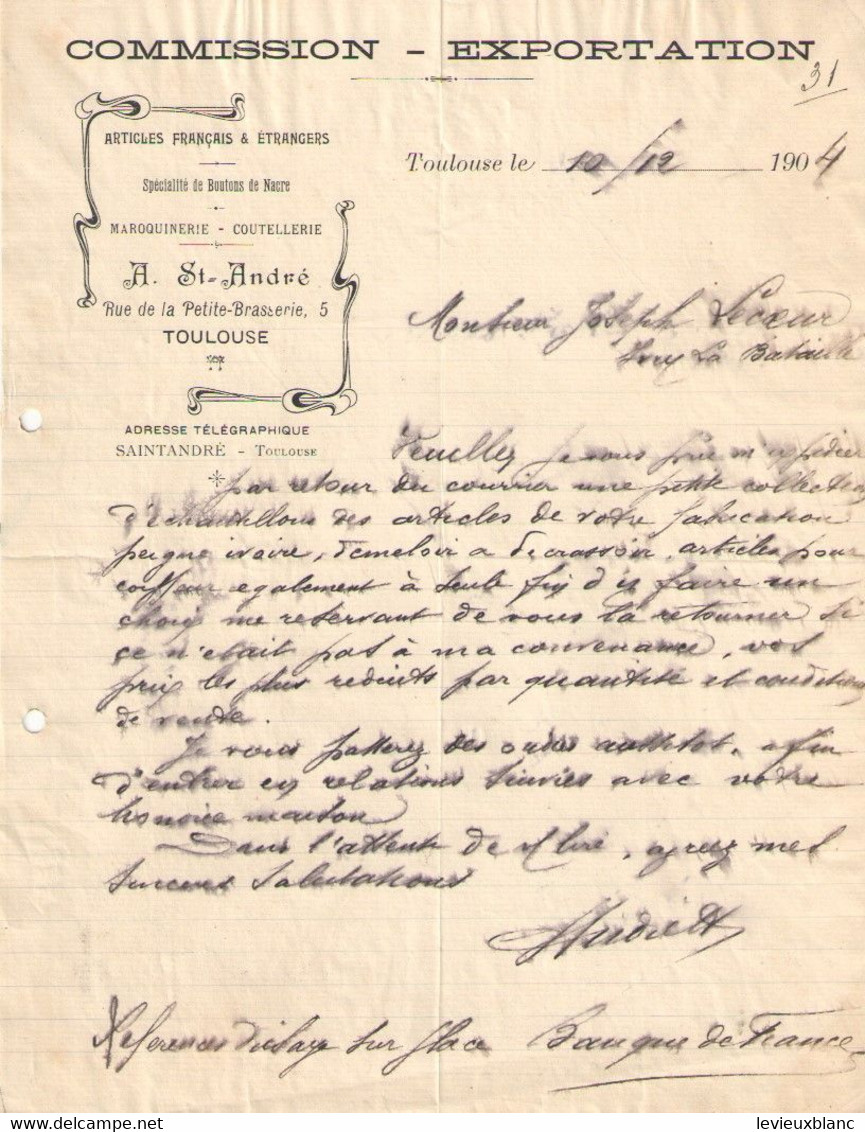 COMMISSION - EXPORTATION
31
ARTICLES FRANÇAIS & ÉTRANGERS
Spécialité de Boutons de Nacre
MAROQUINERIE - COUTELLERIE
A. St-André
Rue de la Petite-Brasserie, 5
TOULOUSE
ADRESSE TÉLÉGRAPHIQUE
SAINTANDRÉ - TOULOUSE
Toulouse le 10/12 1904
Monsieur Joseph Lecœur
Ivry La Bataille
Veuillez je vous prie m'expédier
par retour du courrier une petite collection
d'échantillons des articles de votre fabrication
peigne ivoire, démeloir a decrassoir, articles pour
coiffeur egalement à seule fin d'y faire un
choix me reservant de vous la retourner si
ce n'etait pas à ma convenance, vos
prix les plus reduits par quantité et conditions
de vente.
Je vous passerez des ordres aussitot, afin
d'entrer en relations suivies avec votre
honorée maison
Dans l'attente de lire, agreez mes
sinceres salutations
References sur place Banque de France
levieuxblanc